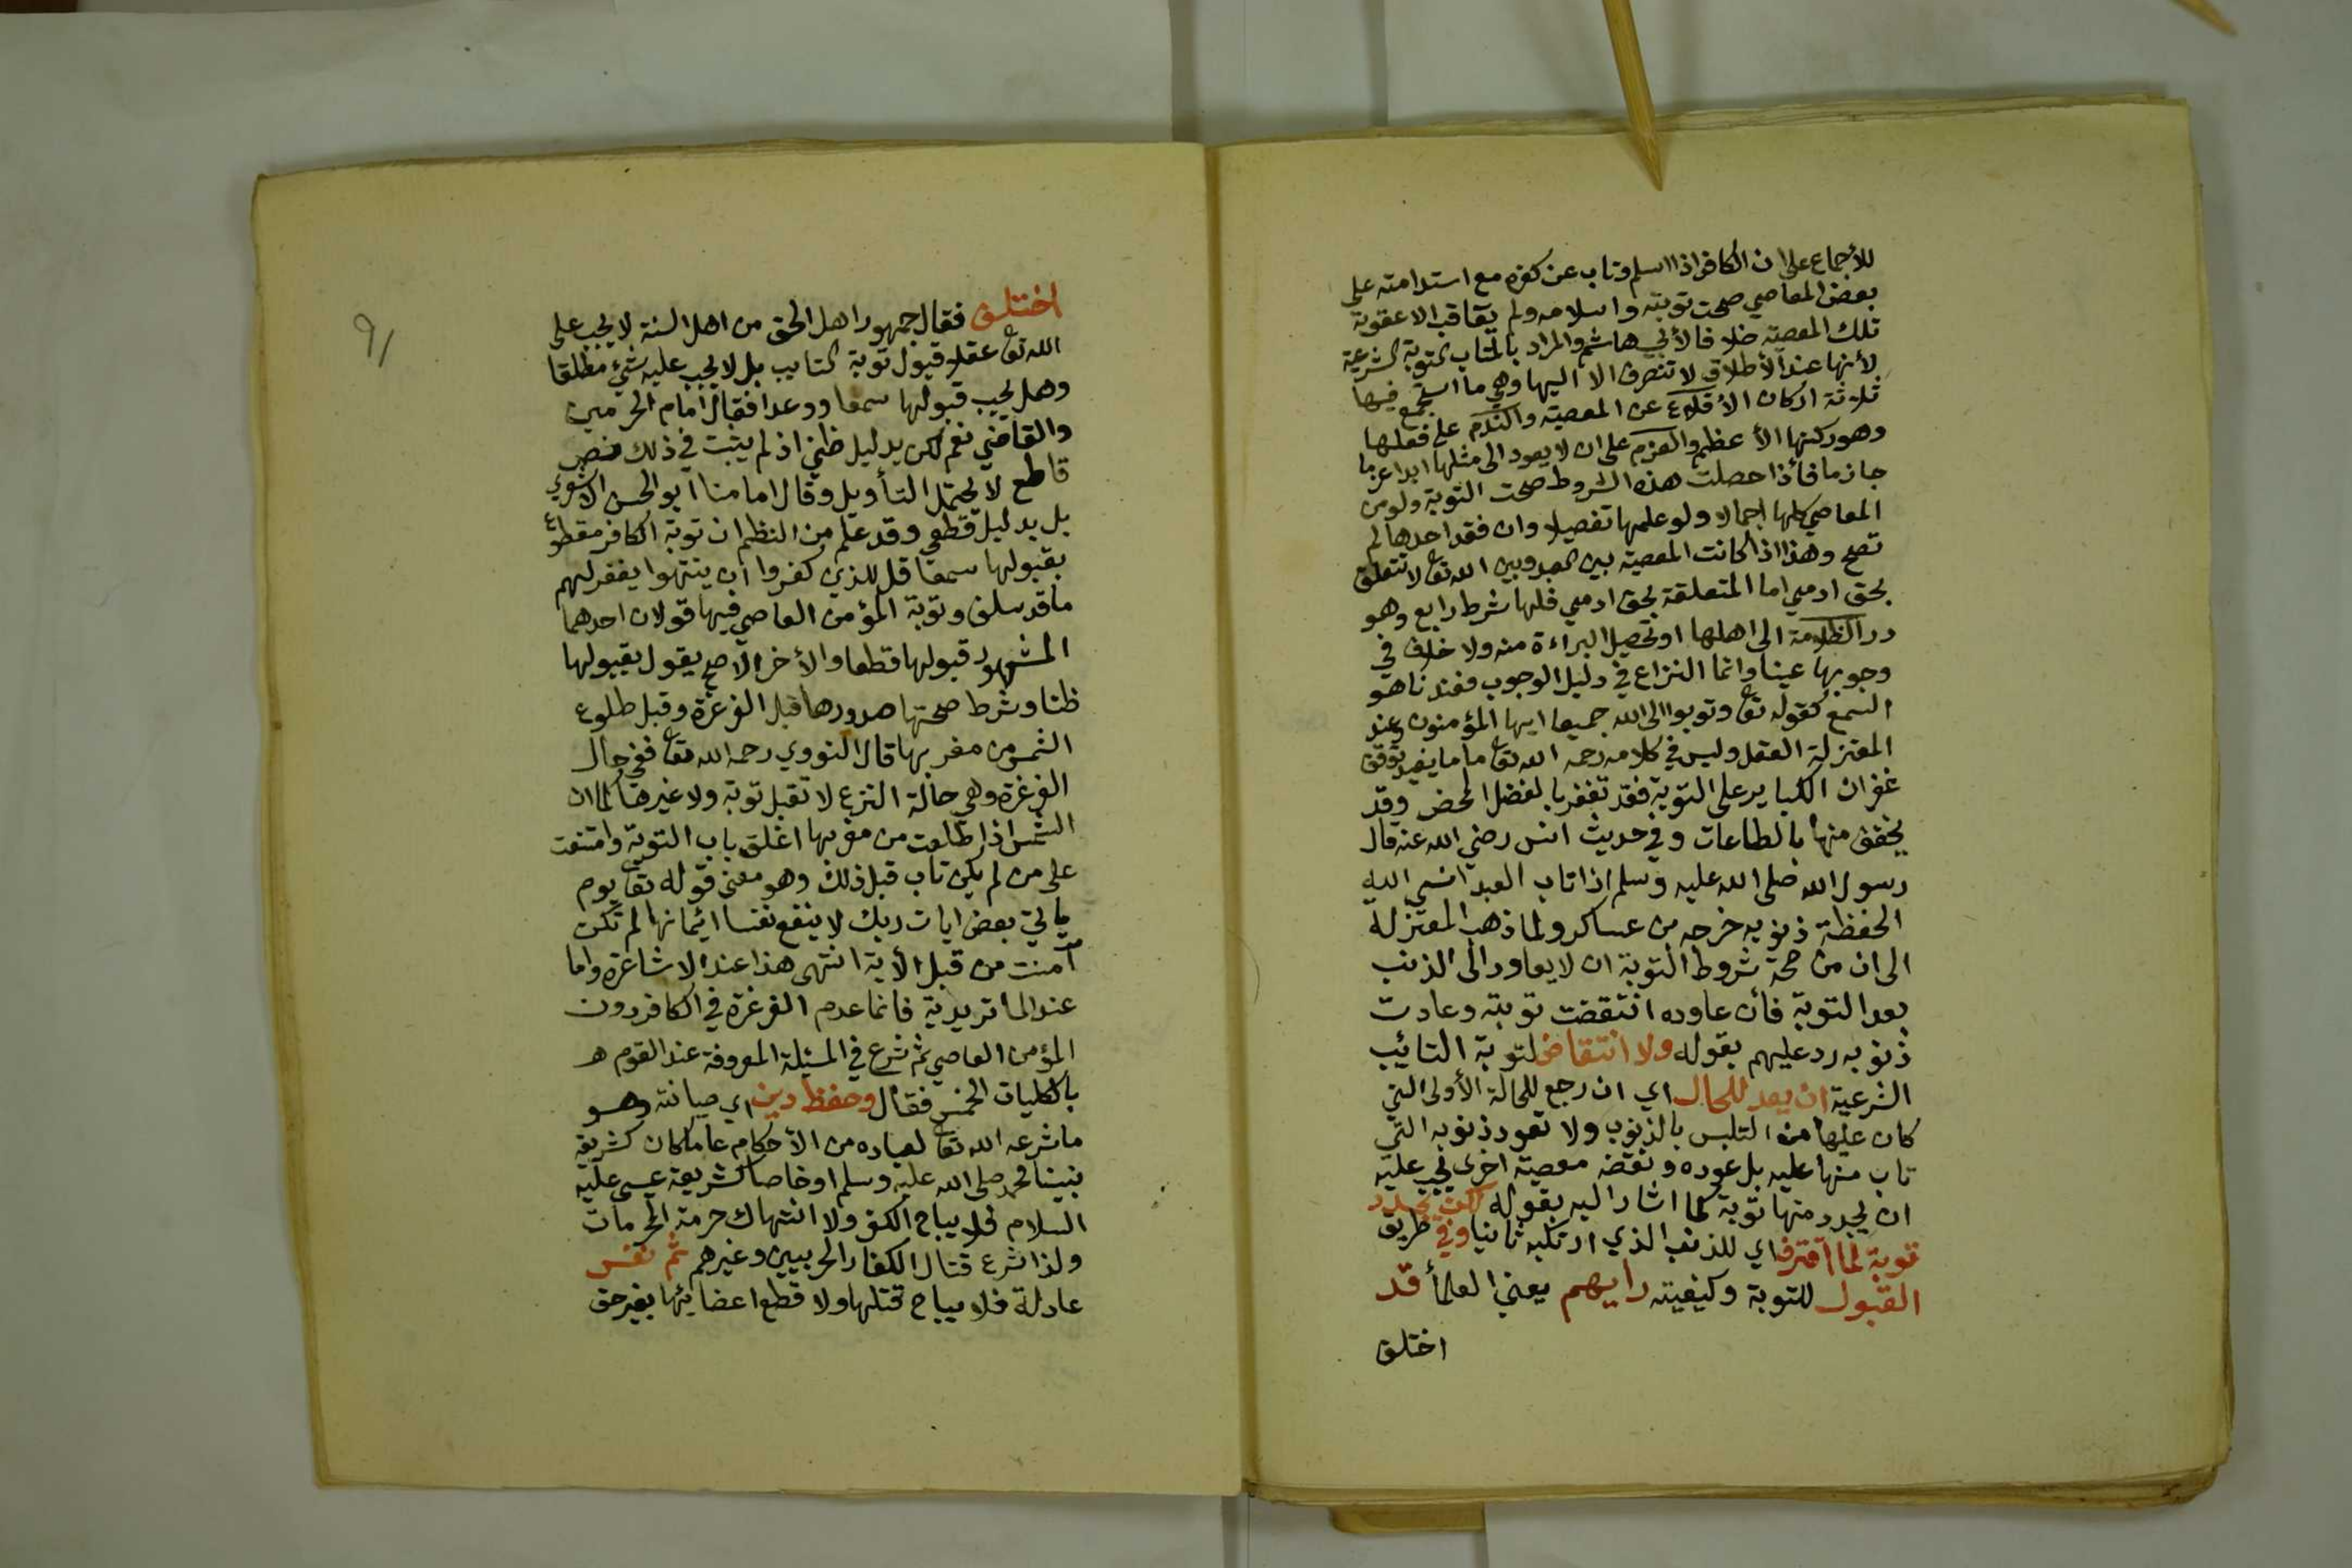 للأجماع على ان الكافر اذا اسلم وتاب عن كفره مع استدامته على
بعض المعاصي صحت توبته واسلامه ولم يعاقب الا عقوبة
تلك المعصية خلافا لأبي هاشم والمراد بالمتاب التوبة الشرعية
لأنها عند الأطلاق لا تنصرف الا اليها وهي ما استجمع فيها
ثلاثة اركان الأقلاع عن المعصية والندم على فعلها
وهو ركنها الأعظم والعزم على ان لا يعود الى مثلها ابدا عزما
جازما فأذا حصلت هذه الشروط صحت التوبة ولو من
المعاصي كلها اجمالا ولو علمها تفصيلا وان فقد احدها لم
تصح وهذا اذا كانت المعصية بين العبد وبين الله تعا لا تتعلق
بحق ادمي اما المتعلقة بحق ادمي فلها شرط رابع وهو
رد الظلامة الى اهلها او تحصيل البراءة منه ولا خلاف في
وجوبها عينا وانما النزاع في دليل الوجوب فعندنا هو
السمع كقوله تعا وتوبوا الى الله جميعا ايها المؤمنون وعند
المعتزلة العقل وليس في كلامه رحمه الله تعا ما يفيد توقف
غفران الكباير على التوبة فقد تغفر بالفضل المحض وقد
يخفف منها بالطاعات وفي حديث انس رضي الله عنه قال
رسول الله صلى الله عليه وسلم اذا تاب العبد انسى الله
الحفظة ذنوبه خرجه من عساكر ولما ذهب المعتزلة
الى ان من صحة شروط التوبة ان لا يعاود الى الذنب
بعد التوبة فأن عاوده انتقضت توبته وعادت
ذنوبه رد عليهم بقوله ولا انتقاض لتوبة التائب
الشرعية ان يعد للحال اي ان رجع للحالة الأولى التي
كان عليها من التلبس بالذنوب ولا تعود ذنوبه التي
تاب منها عليه بل عوده ونقضه معصية اخرى يجب عليه
ان يجدد منها توبة كما اشار اليه بقوله لكن يجدد
توبة لما اقترف اي للذنب الذي ارتكبه ثانيا وفي طريق
القبول للتوبة وكيفيته رايهم يعني العلمأ قد
اختلف
٩١
اختلف فقال جمهور اهل الحق من اهل السنة لا يجب على
الله تعا عقلا قبول توبة التايب بل لا يجب عليه شيء مطلقا
وهل يجب قبولها سمعا ووعدا فقال امام الحرمين
والقاضي نعم لكن بدليل ظني اذ لم يثبت في ذلك نص
قاطع لا يحتمل التأويل وقال امامنا ابو الحسن الاشعري
بل بدليل قطعي وقد علم من النظم ان توبة الكافر مقطوع
بقبولها سمعا قل للذين كفروا ان ينتهوا يغفر لهم
ما قد سلف وتوبة المؤمن العاصي فيها قولان احدهما
المشهور قبولها قطعا والأخر الأصح يقول بقبولها
ظنا وشرط صحتها صدورها قبل الغرغرة وقبل طلوع
الشمس من مغربها قال النووي رحمه الله تعا ففي حال
الغرغرة وهي حالة النزع لا تقبل توبة ولا غيرها كما ان
الشمس اذا طلعت من مغربها اغلق باب التوبة وامتنعت
على من لم يكن تاب قبل ذلك وهو معنى قوله تعا يوم
يأتي بعض ايات ربك لا ينفع نفسا ايمانها لم تكن
آمنت من قبل الأية انتهى هذا عند الاشاعرة واما
عند الماتريدية فانما عدم الغرغرة في الكافر دون
المؤمن العاصي ثم شرع في المسئلة المعروفة عند القوم
بالكليات الخمس فقال وحفظ دين اي صيانته وهو
ما شرعه الله تعا لعباده من الأحكام عاما كان كشريعة
نبينا محمد صلى الله عليه وسلم او خاصا كشريعة عيسى عليه
السلام فلا يباح الكفر ولا انتهاك حرمة المحرمات
ولذا شرع قتال الكفار الحربيين وغيرهم ثم نفس
عادلة فلا يباح قتلها ولا قطع اعضايئها بغير حق